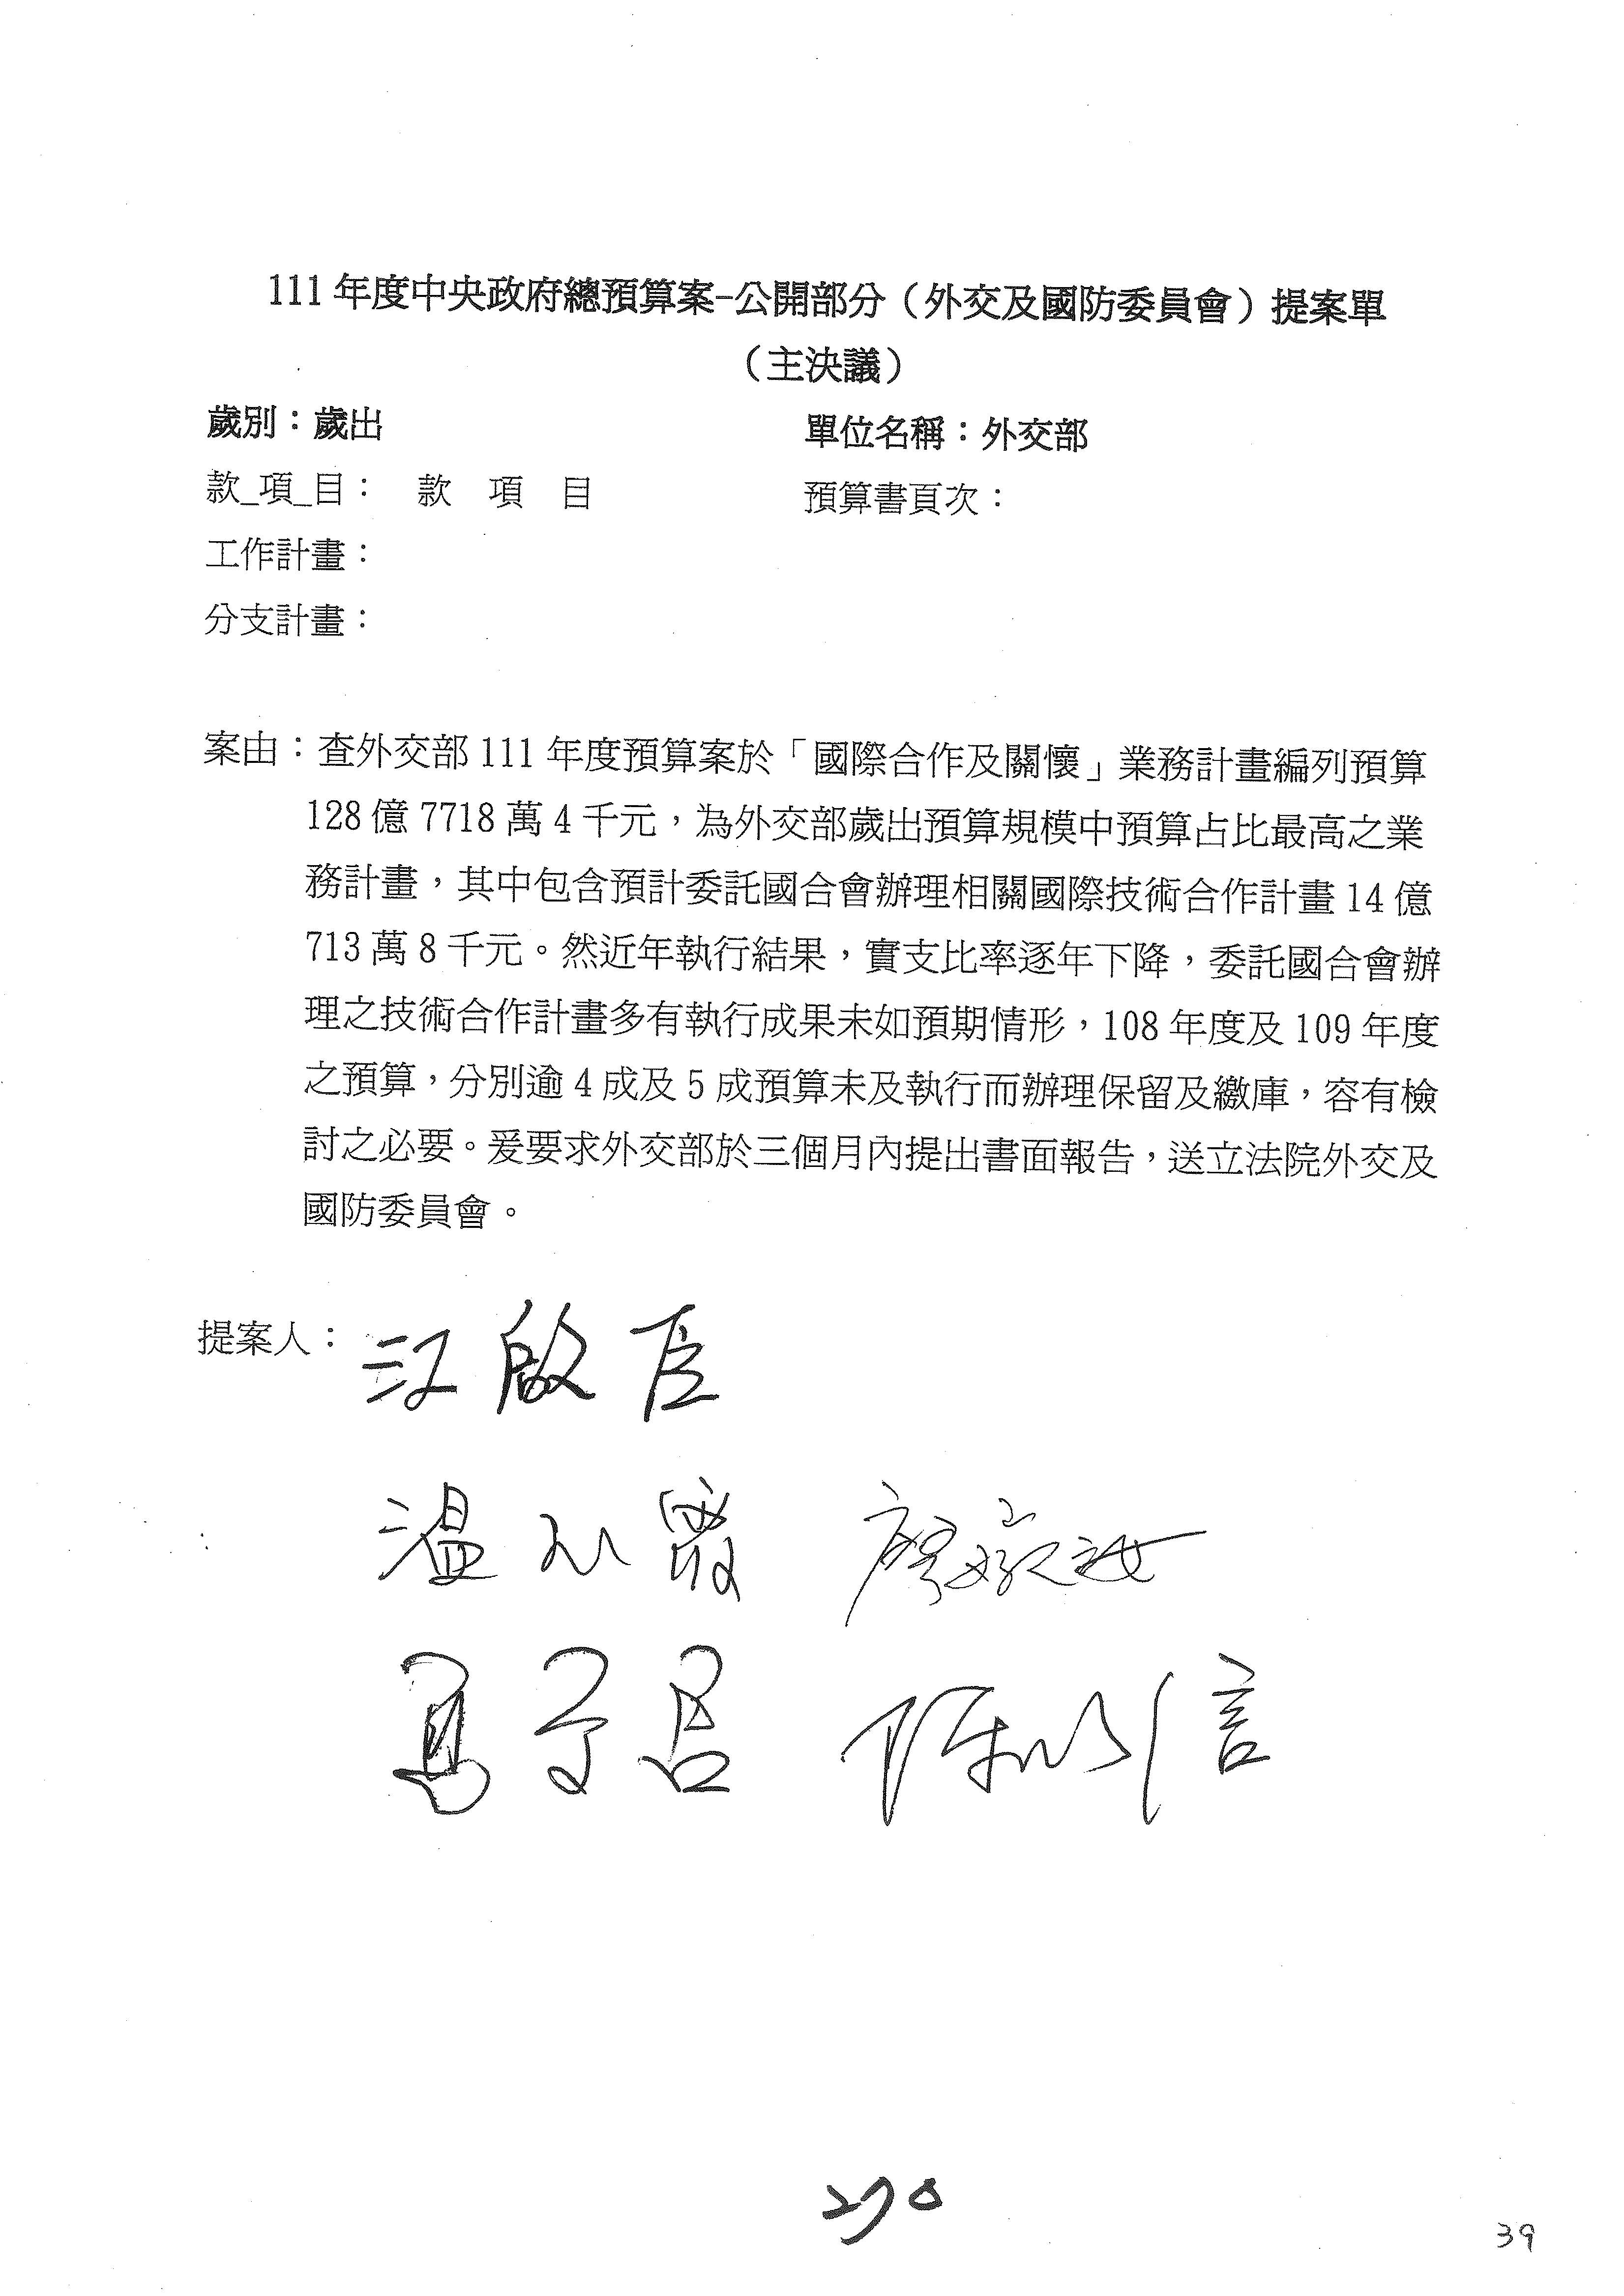 111年度中央政府總預算案-公開部分（外交及國防委員會）提案單
（主決議）
歲別：歲出
單位名稱：外交部
款_項_目： 款 項 目
預算書頁次：
工作計畫：
分支計畫：
案由：查外交部111年度預算案於「國際合作及關懷」業務計畫編列預算
128億7718萬4千元，為外交部歲出預算規模中預算占比最高之業
務計畫，其中包含預計委託國合會辦理相關國際技術合作計畫14億
713萬8千元。然近年執行結果，實支比率逐年下降，委託國合會辦
理之技術合作計畫多有執行成果未如預期情形，108年度及109年度
之預算，分別逾4成及5成預算未及執行而辦理保留及繳庫，容有檢
討之必要。爰要求外交部於三個月內提出書面報告，送立法院外交及
國防委員會。
提案人：江啟臣
溫玉霞
馬文君 陳以信
270
39